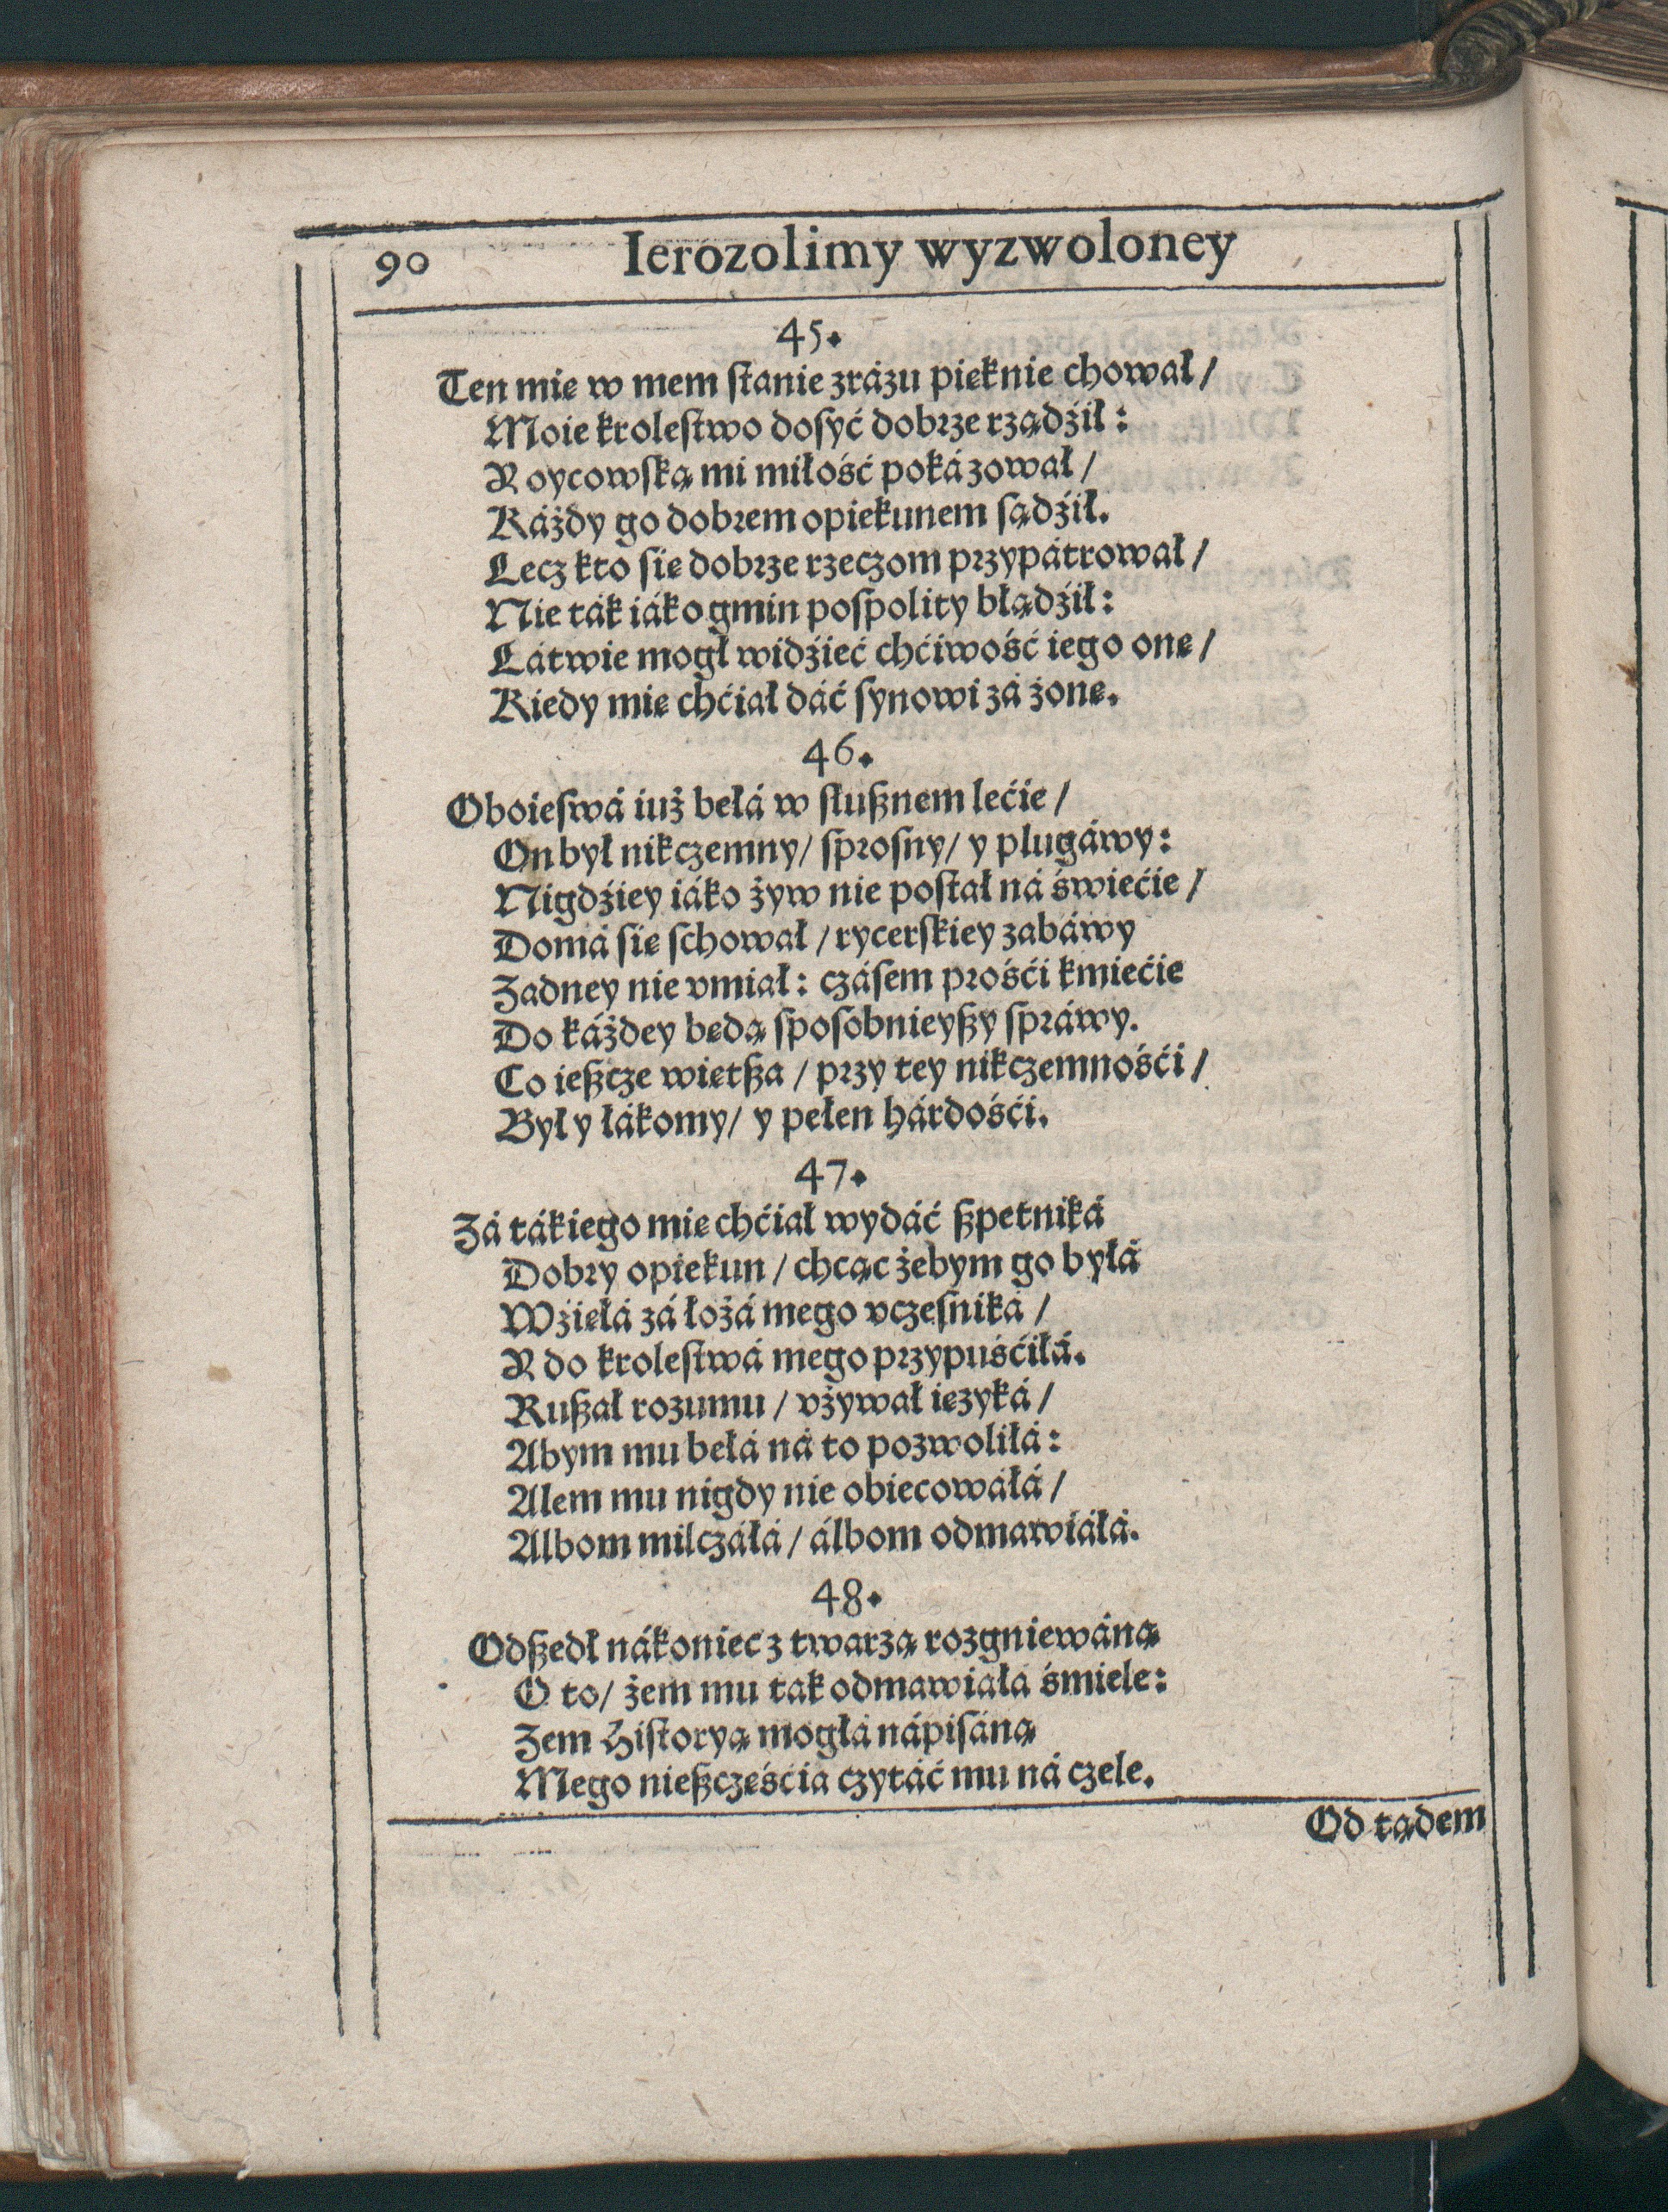 90 Ierozolimy wyzwoloney
45.
Ten mię w mem ſtanie zrázu pięknie chował /
Moie kroleſtwo doſyć dobrze rządźił :
Y oycowſką mi miłość pokázował /
Káżdy go dobrem opiekunem ſądźił.
Lecz kto ſię dobrze rzeczom przypátrował /
Nie ták iáko gmin poſpolity błądźił :
Łátwie mogł widźieć chćiwość iego onę /
Kiedy mię chćiał dáć ſynowi zá żonę.
46.
Oboieſwá iuż bełá w ſłuſznem lećie /
On był nikczemny / ſproſny / y plugáwy :
Nigdźiey iáko żyw nie poſtał ná świećie /
Domá ſię ſchował / rycerſkiey zabáwy
Zadney nie vmiał : czáſem prośći kmiećie
Do káżdey będą ſpoſobnieyſzy ſpráwy.
Co ieſzcze więtſza / przy tey nikczemnośći /
Był y łákomy / y pełen hárdośći.
47.
Zá tákiego mię chćiał wydáć ſzpetniká
Dobry opiekun / chcąc żebym go byłá
Wźięłá zá łożá mego vczeſniká /
Y do kroleſtwá mego przypuśćiłá.
Ruſzał rozumu / vżywał ięzyká /
Abym mu bełá ná to pozwoliłá :
Alem mu nigdy nie obiecowáłá /
Albom milczáłá / álbom odmawiáłá.
48.
Odſzedł nákoniec z twarzą rozgniewáną
O to / żem mu tak odmawiałá śmiele :
Zem Hiſtoryą mogłá nápiſáną
Mego nieſzczęśćia czytáć mu ná czele.
Od tądem